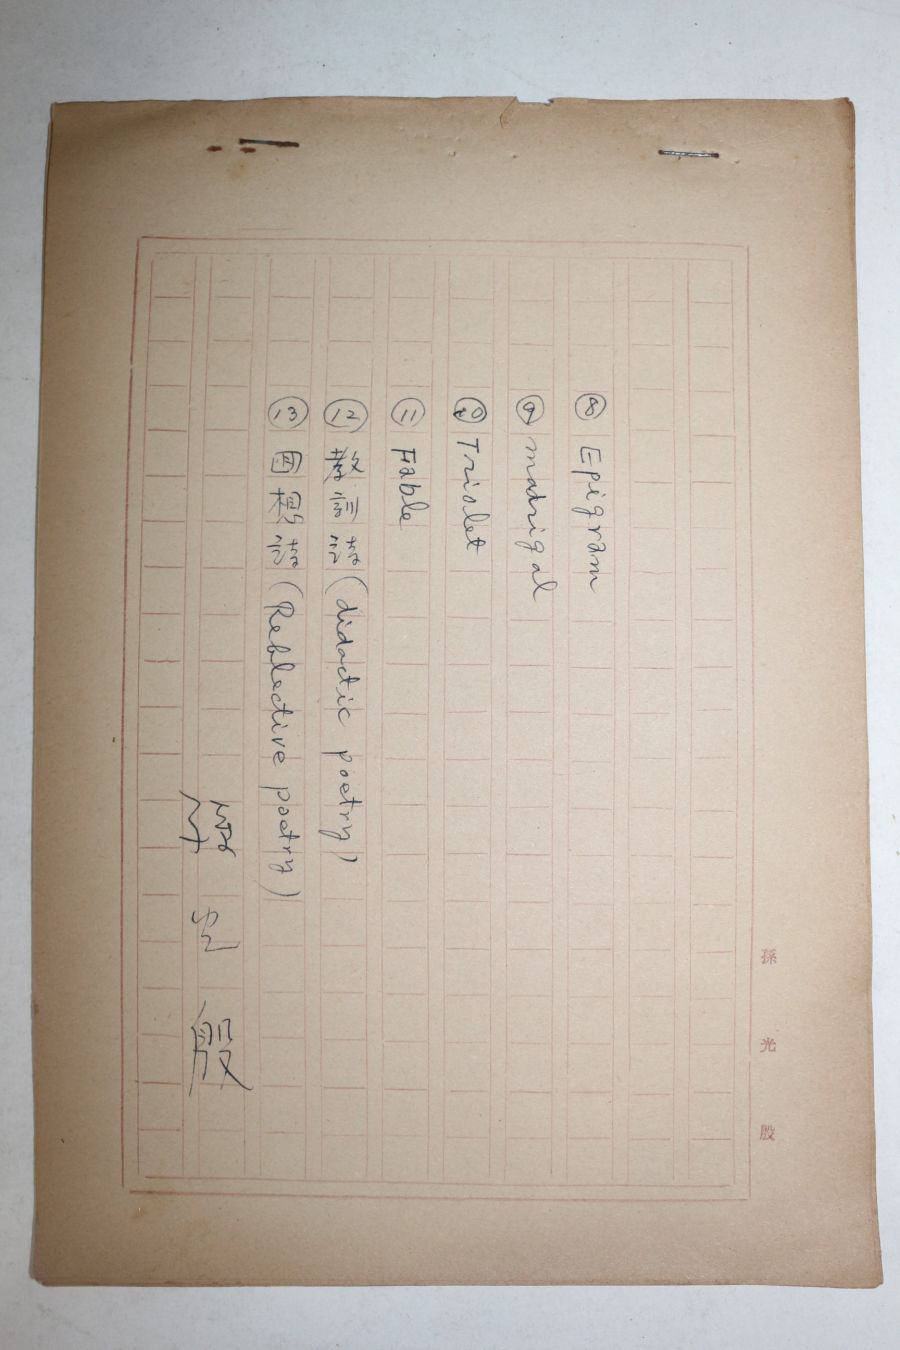 ⑧ Epigram
⑨ madrigal
⑩ Triolet
⑪ Fable
⑫ 敎訓詩 (didactic poetry)
⑬ 回想詩 (Reblective poetry)
孫光殷